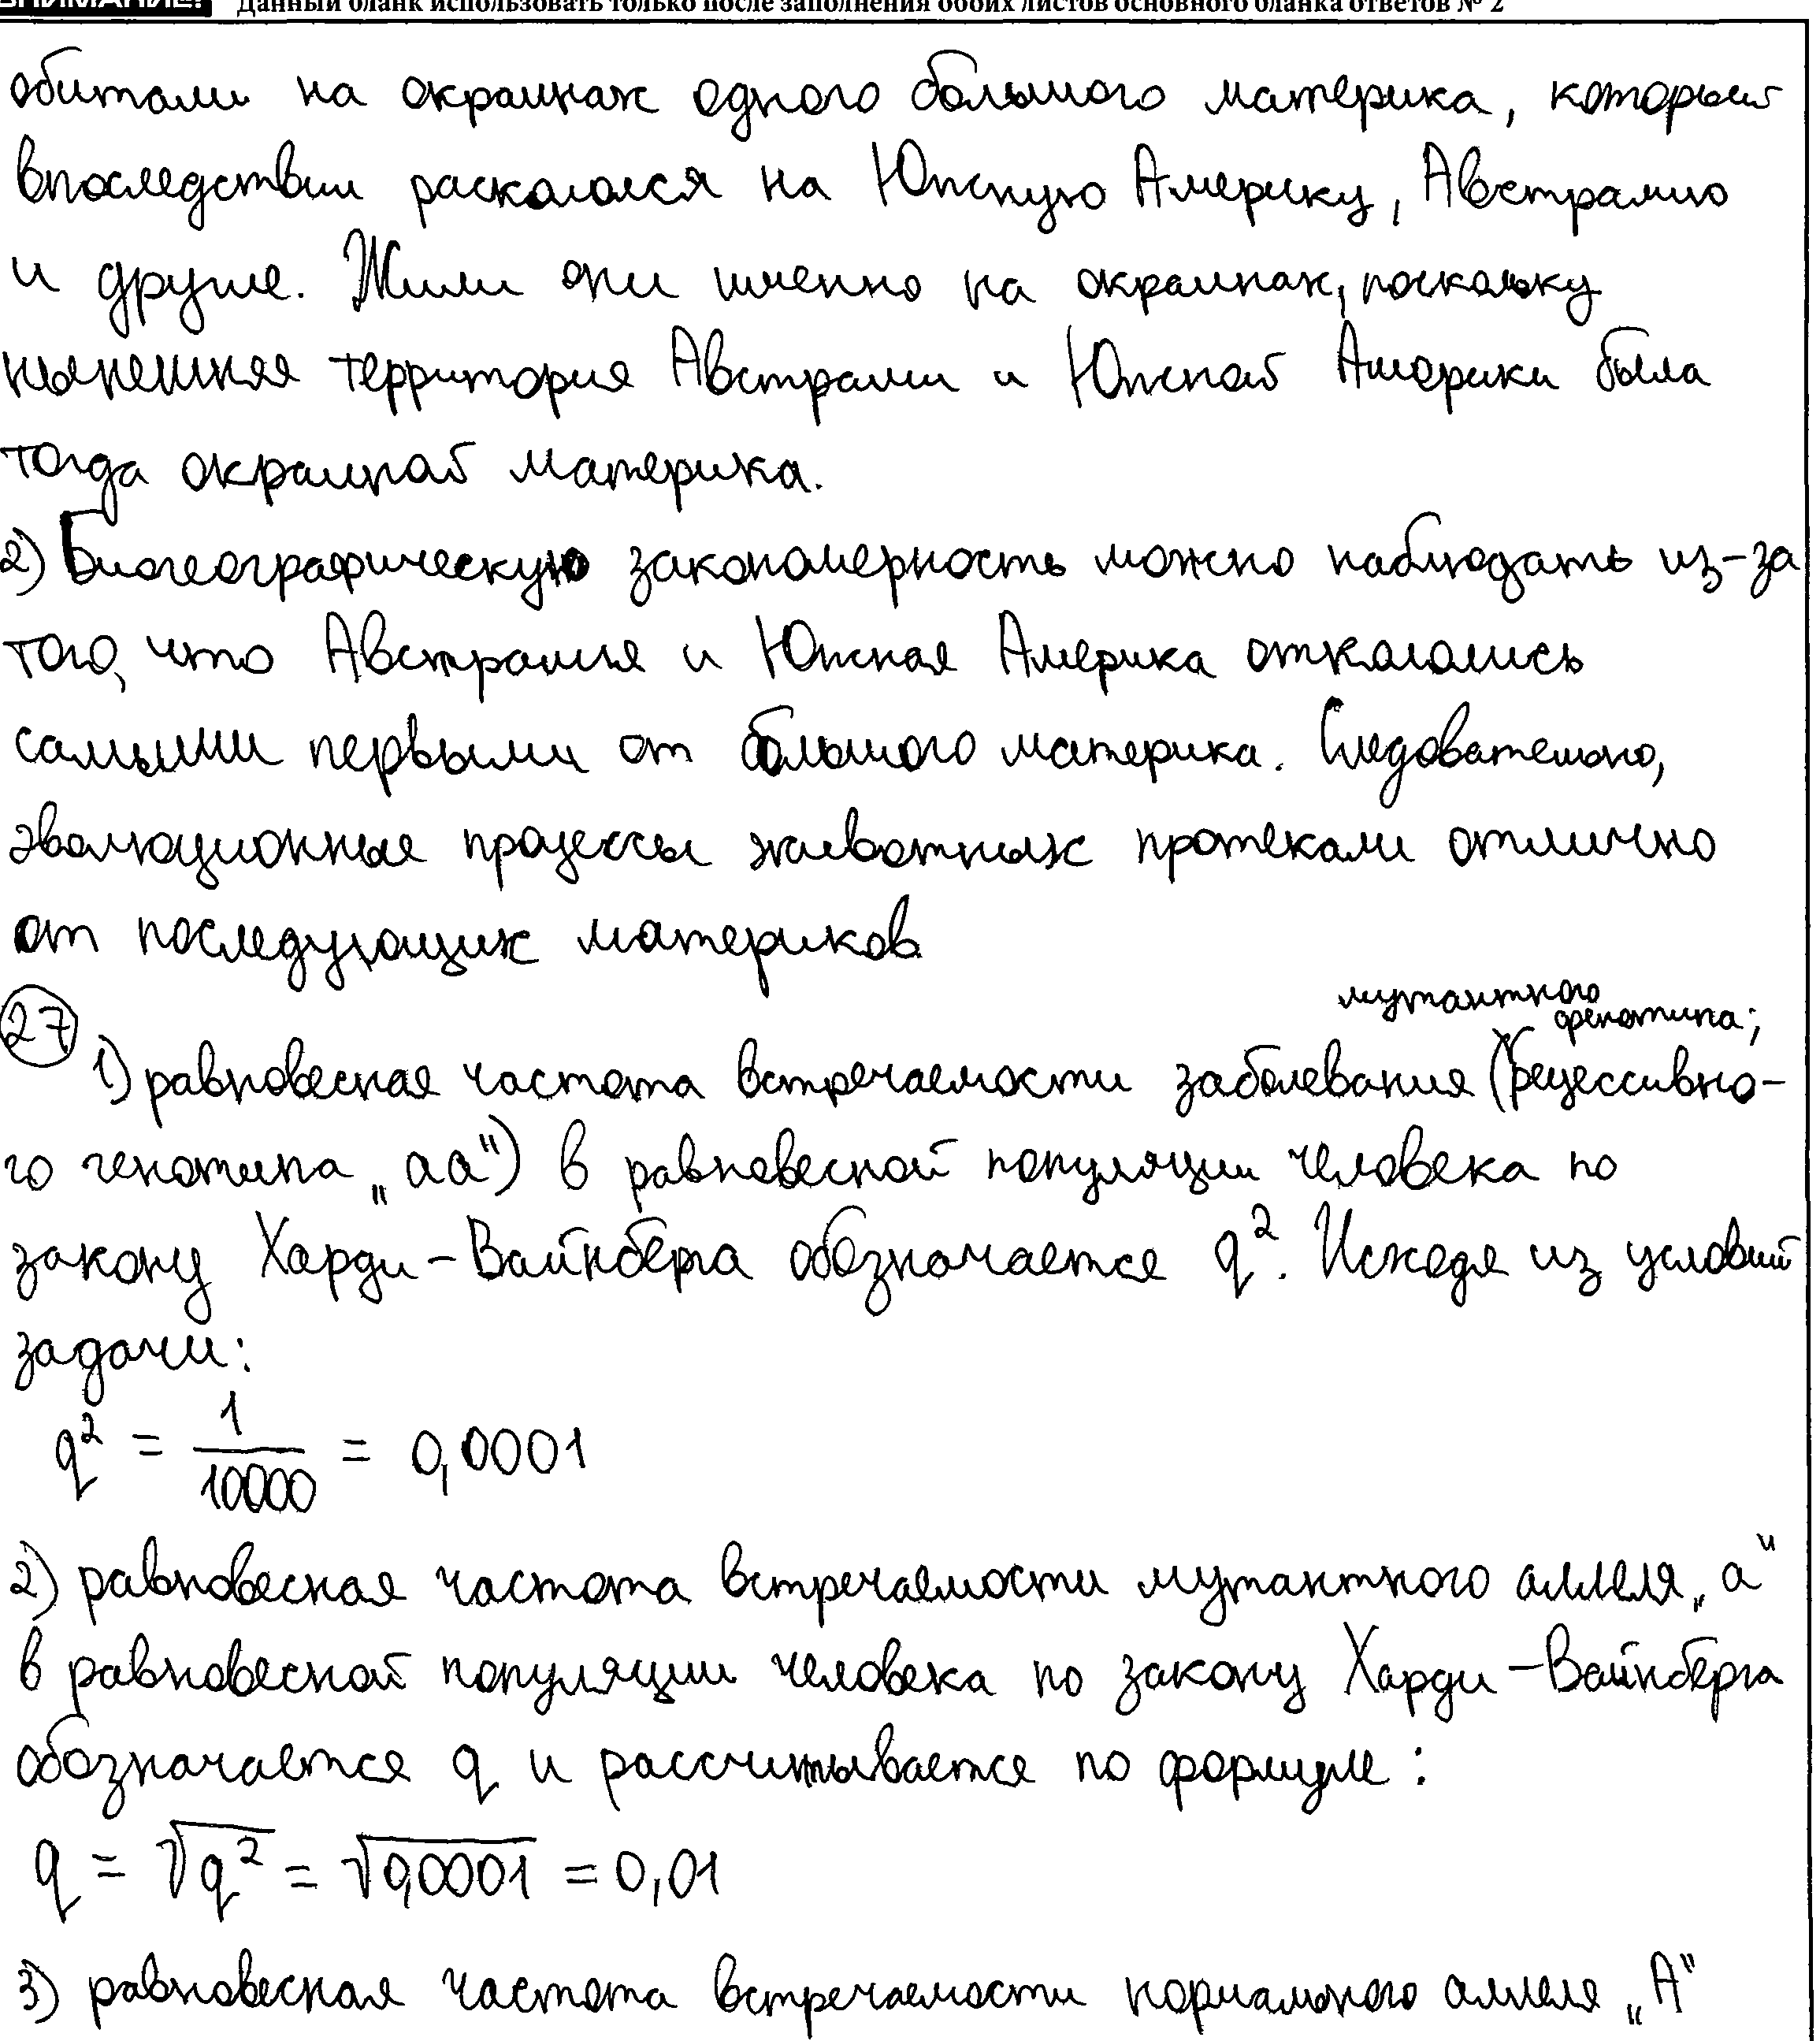 ВНИМАНИЕ! Данный бланк использовать только после заполнения обоих листов основного бланка ответов № 2
обитали на окраинах одного большого материка, который
впоследствии раскололся на Южную Америку, Австралию
и другие. Жили они именно на окраинах, поскольку
нынешняя территория Австралии и Южной Америки была
тогда окраиной материка.
2) Биогеографическую закономерность можно наблюдать из-за
того, что Австралия и Южная Америка откололись
самыми первыми от большого материка. Следовательно,
эволюционные процессы животных протекали отлично
от последующих материков.
мутантного
фенотипа;
27 1) равновесная частота встречаемости заболевания (рецессивно-
го генотипа „аа“) в равновесной популяции человека по
закону Харди-Вайнберга обозначается q². Исходя из условий
задачи:
q² = 1/10000 = 0,0001
2) равновесная частота встречаемости мутантного аллеля „а“
в равновесной популяции человека по закону Харди-Вайнберга
обозначается q и рассчитывается по формуле:
q = √q² = √0,0001 = 0,01
3) равновесная частота встречаемости нормального аллеля „А“